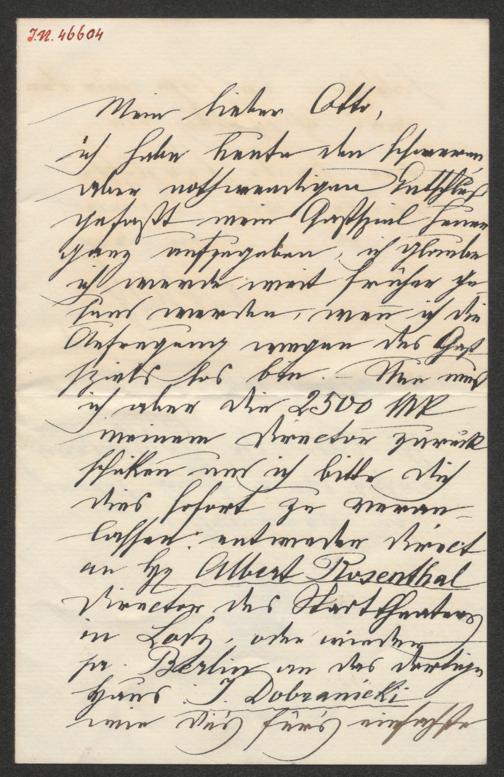 J.N. 46604
Mein lieber Otto,
ich habe heute den schweren
aber nothwendigen Entschluß
gefaßt mein Gastspiel heuer
ganz aufzugeben, ich glaube
ich werde weit früher ge-
sund werden, wen ich die
Aufregung wegen des Gast
spiels los bin. – Nun muß
ich aber die 2500 MK
meinem Director zurück
schiken und ich bitte dich
dies sofort zu veran-
lassen. entweder direct
an H Albert Rosenthal
Director des Stadttheaters
in Lodz, oder wieder
pr. Berlin an das dortige
Haus J. Dobranicki
wie dies fürs einfachste